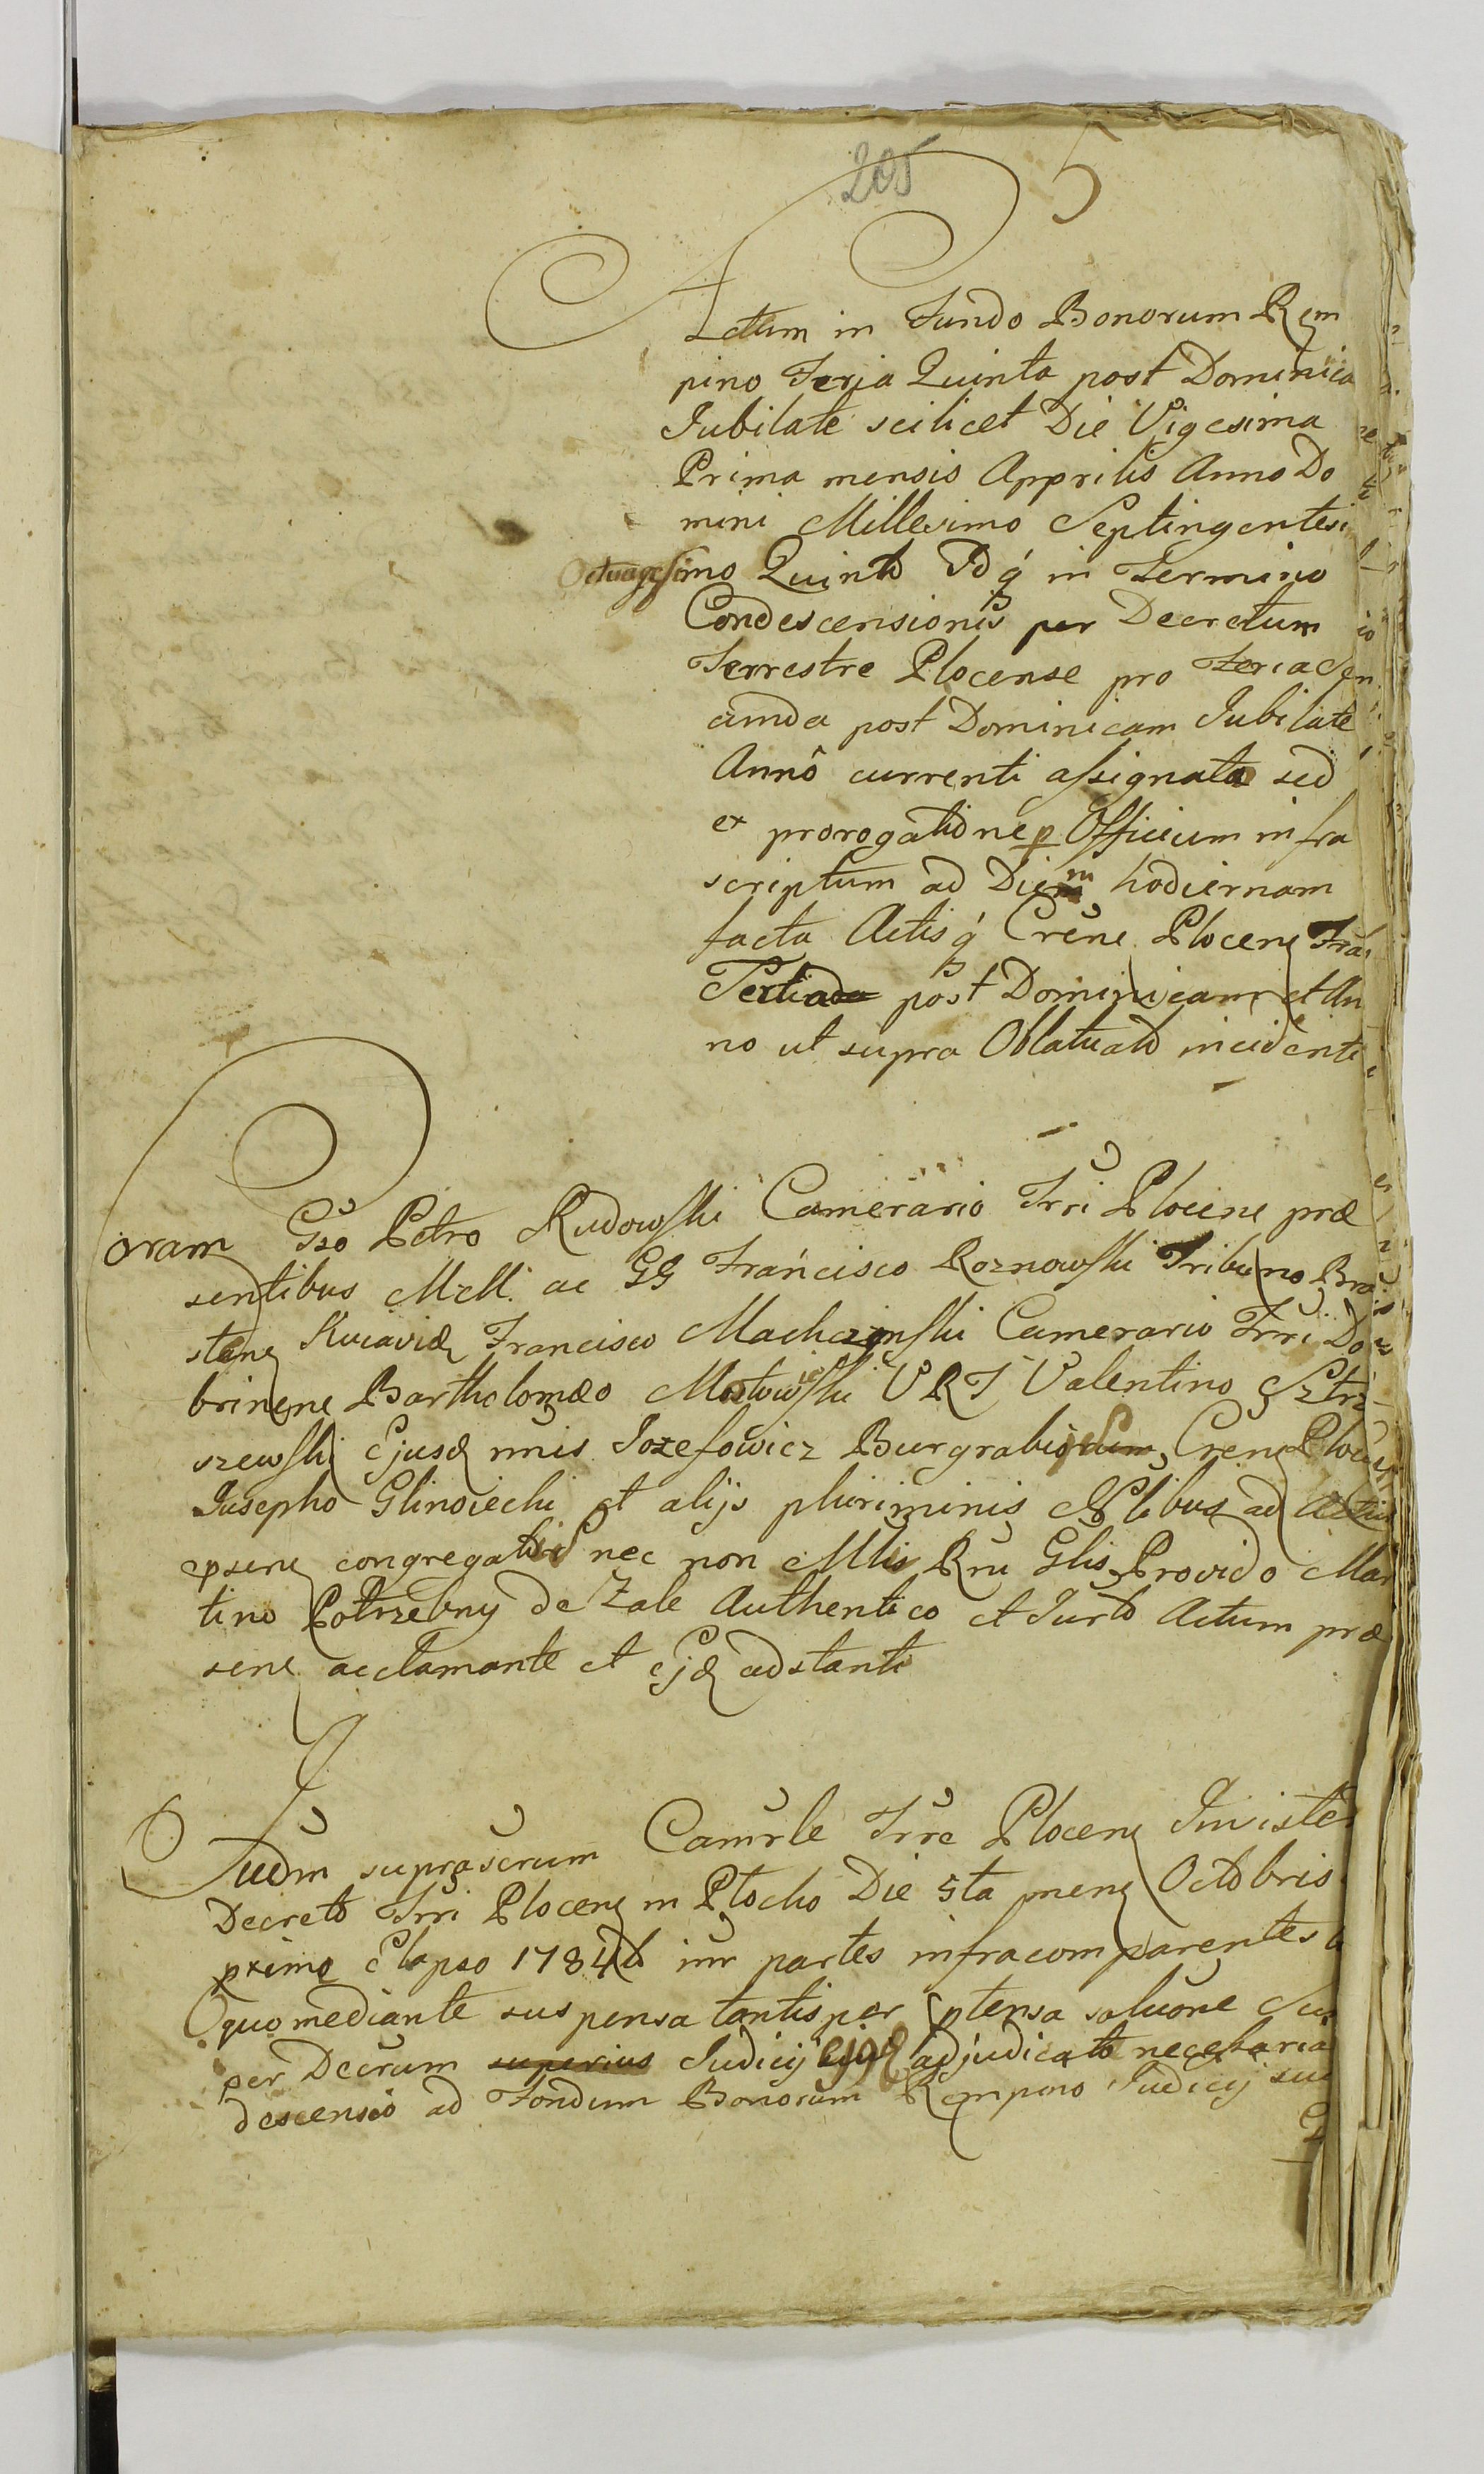 205 5
Actum in Fundo Bonorum Rem
pino Feria Quinta post Dominica
Iubilate scilicet Die Vigesima
Prima mensis Apprilis Anno Do
mini Millesimo Septingentesi
Octuagesimo Quinto Idq́ in Termino
Condescensionis per Decretum
Terrestre Plocense pro Feria Sen
cunda post Dominicam Iubilate
Annô currenti assignata sed
ex prorogatione p Officium infra
scriptum ad Diem hodiernam
facta Actisq́ Crene Plocen
Tertia post Dominicam et An
no ut supra Oblatuato incidenti
Coram Gso Petro Rudowski Camerario Trri Plocene præ
sentibus MM. ac GG Francisco Roznowski Tribuno Bre
stene Kuiaviæ Francisco Machczynski Camerario Trri Do
brinene Bartholomæo Mostowski V R T Valentino
szewski Ejusd nnis Jozefowicz Burgrabio Crene Plocen
Iusepho Glinoiecki et alijs pluriminis Nblibus ad Actum
psene congregatis nec non Mllis Rni Glis Provido Mar
tino Potrzebny de Zale Authentico et Iurto Actum præ
sene acclamante et Ejd adstanti
Iudm suprascrum Camrle Trre Plocene
Decreto Trri Plocene in Plocko Die 5ta mene Octobris
primo Elapso 1784to inr partes infracomparentes
quo mediante suspensa tantisper ptensa soluõne
per Decrum superius Iudicij ejusd adjudicato necessaria
descensio ad Fondum Bonorum Rempino Iudicij